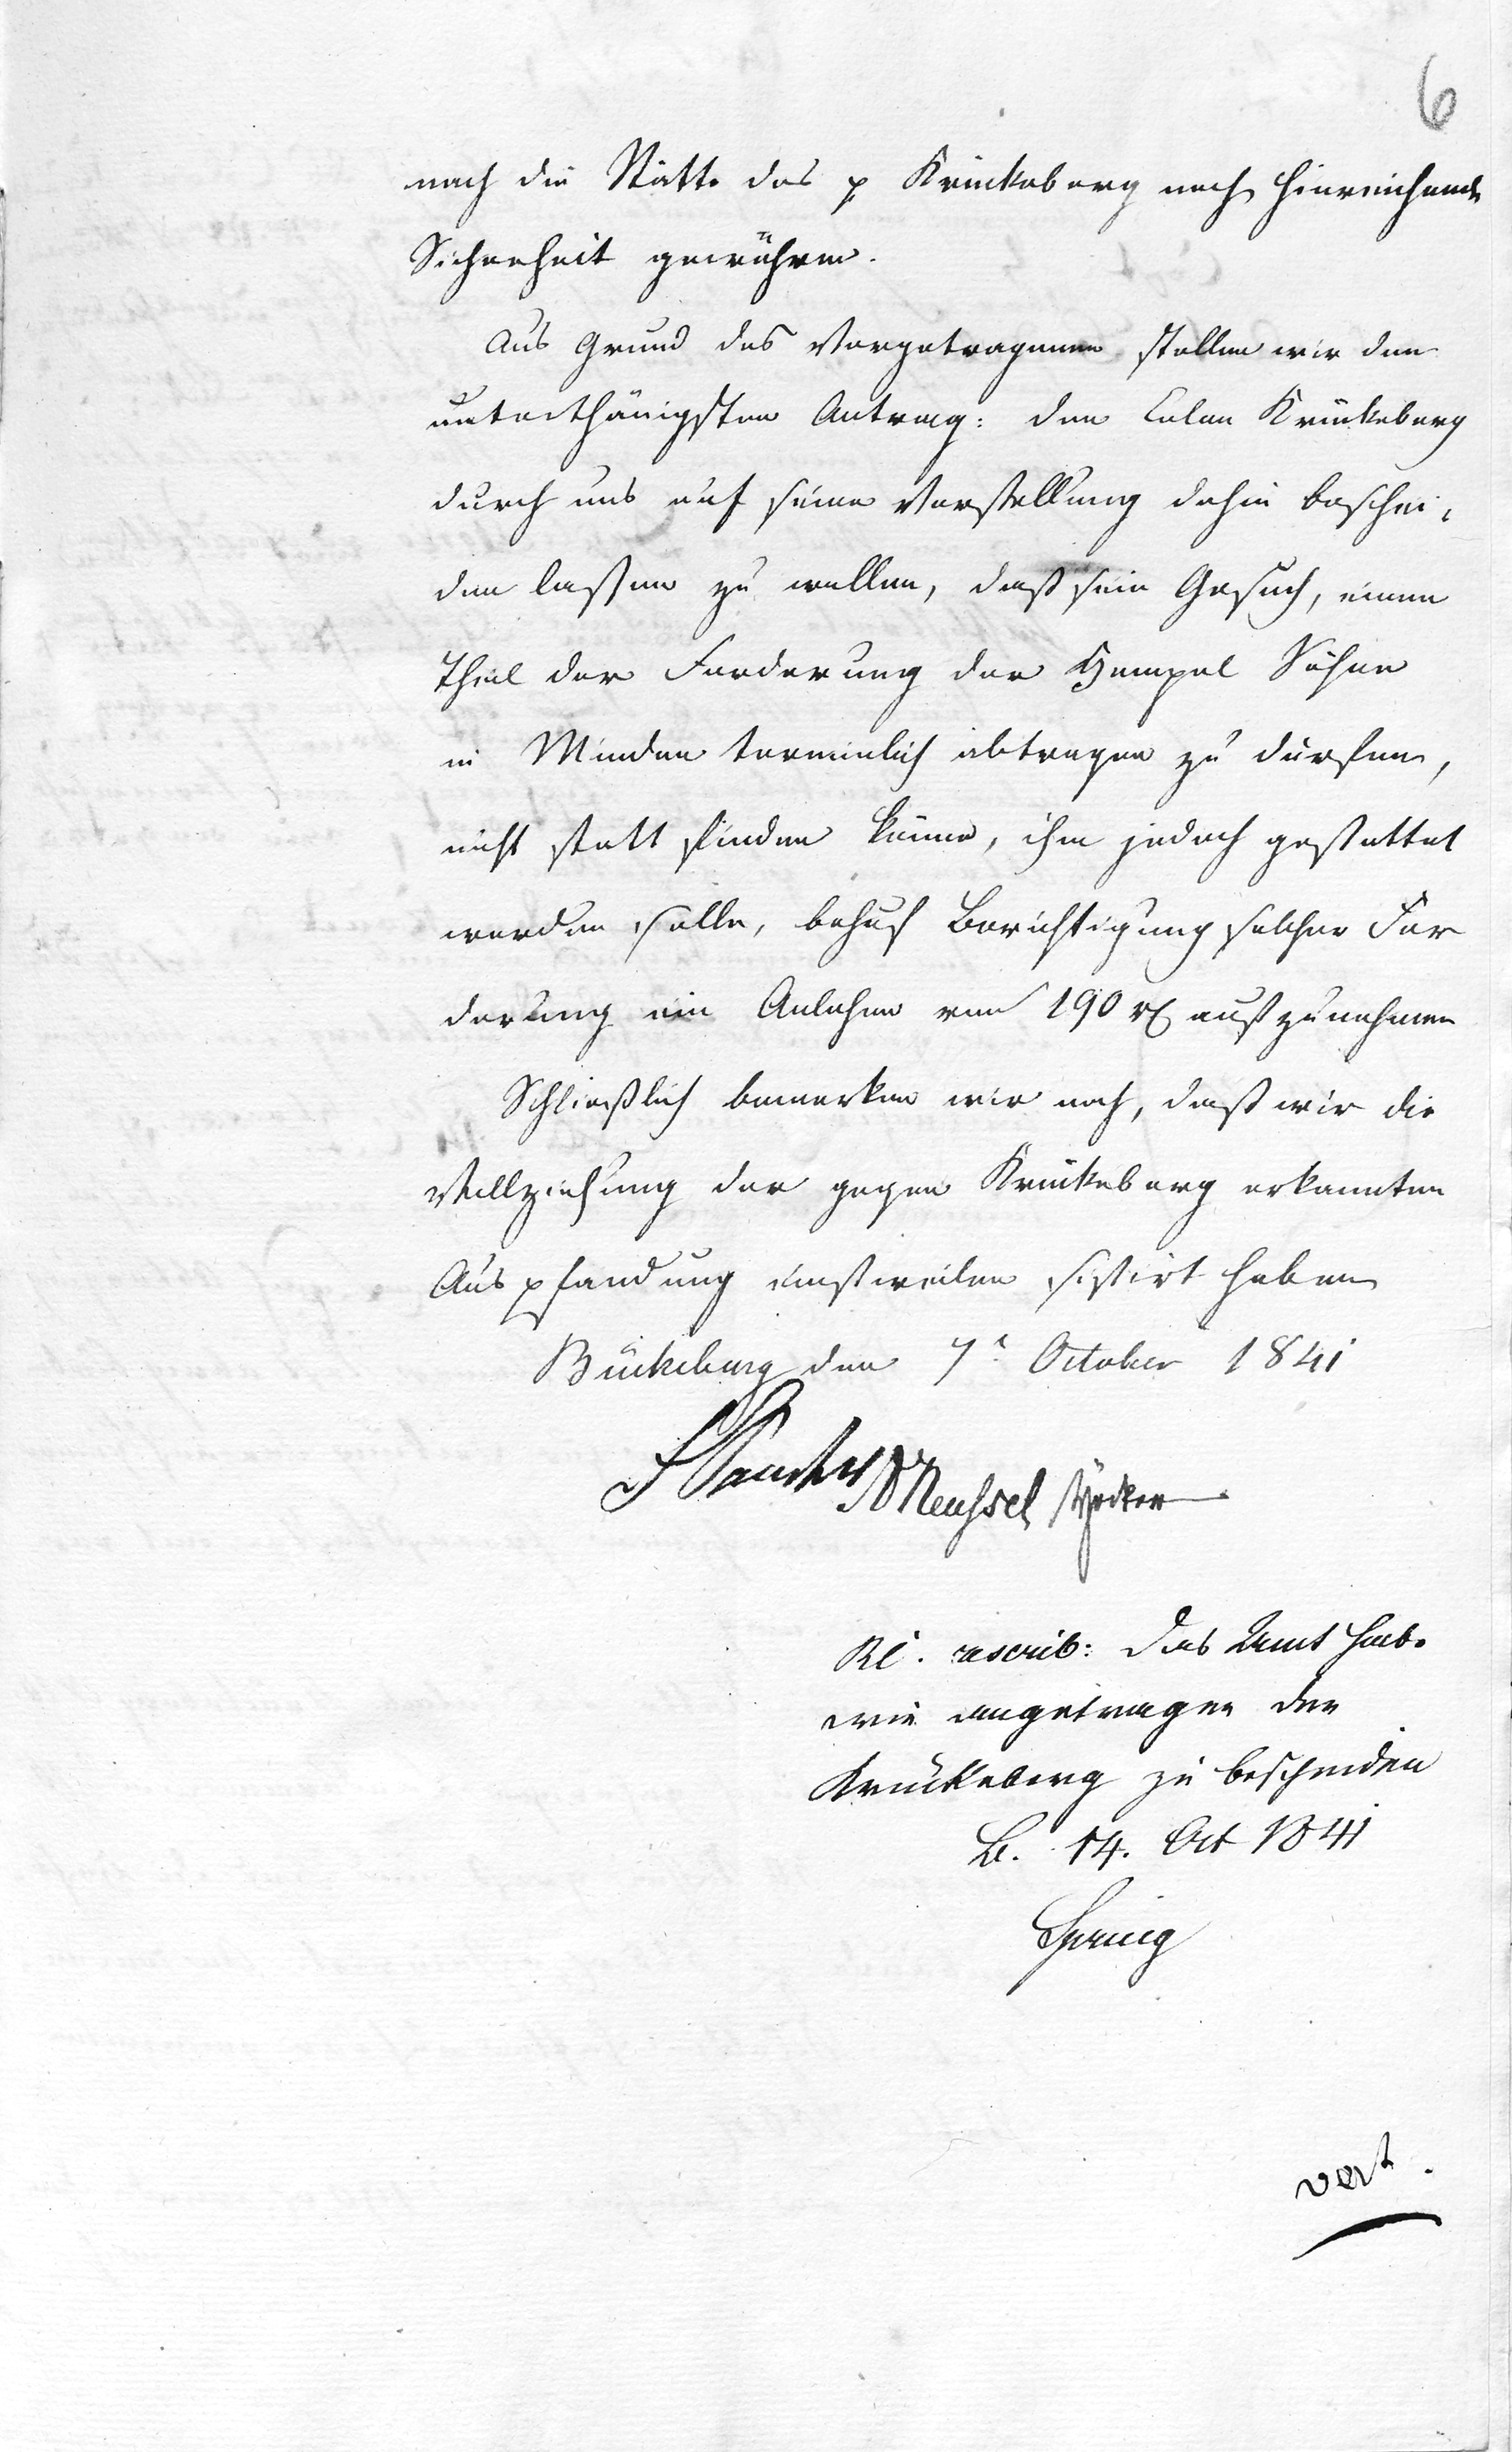 6
nach die Stätte des p Krückeberg noch hinreichende
Sicherheit gewähren.
Aus Grund des Vorgetragenen stellen wir den
unterthänigsten Antrag: den Colon Krückeberg
durch uns auf seine Vorstellung dahin beschei-
den laßen zu wollen, daß sein Gesuch, einen
Theil der Forderung der Hempel Söhne
in Minden terminlich abtragen zu dürfen,
nicht statt finden könne, ihm jedoch gestattet
werden solle, behuf Berichtigung solcher For
derung ein Anlehen von 190 rℓ aufzunehmen
Schließlich bemerken wir noch, daß wir die
Vollziehung der gegen Krückeberg erkannten
Auspfandung einstweilen sistirt haben
Bückeburg den 7t October 1841
Meuhsel
rescrib: Das Amt habe
wie angetragen den
Krückeberg zu bescheiden
B. 14. Oct 1841
Spring
vert.